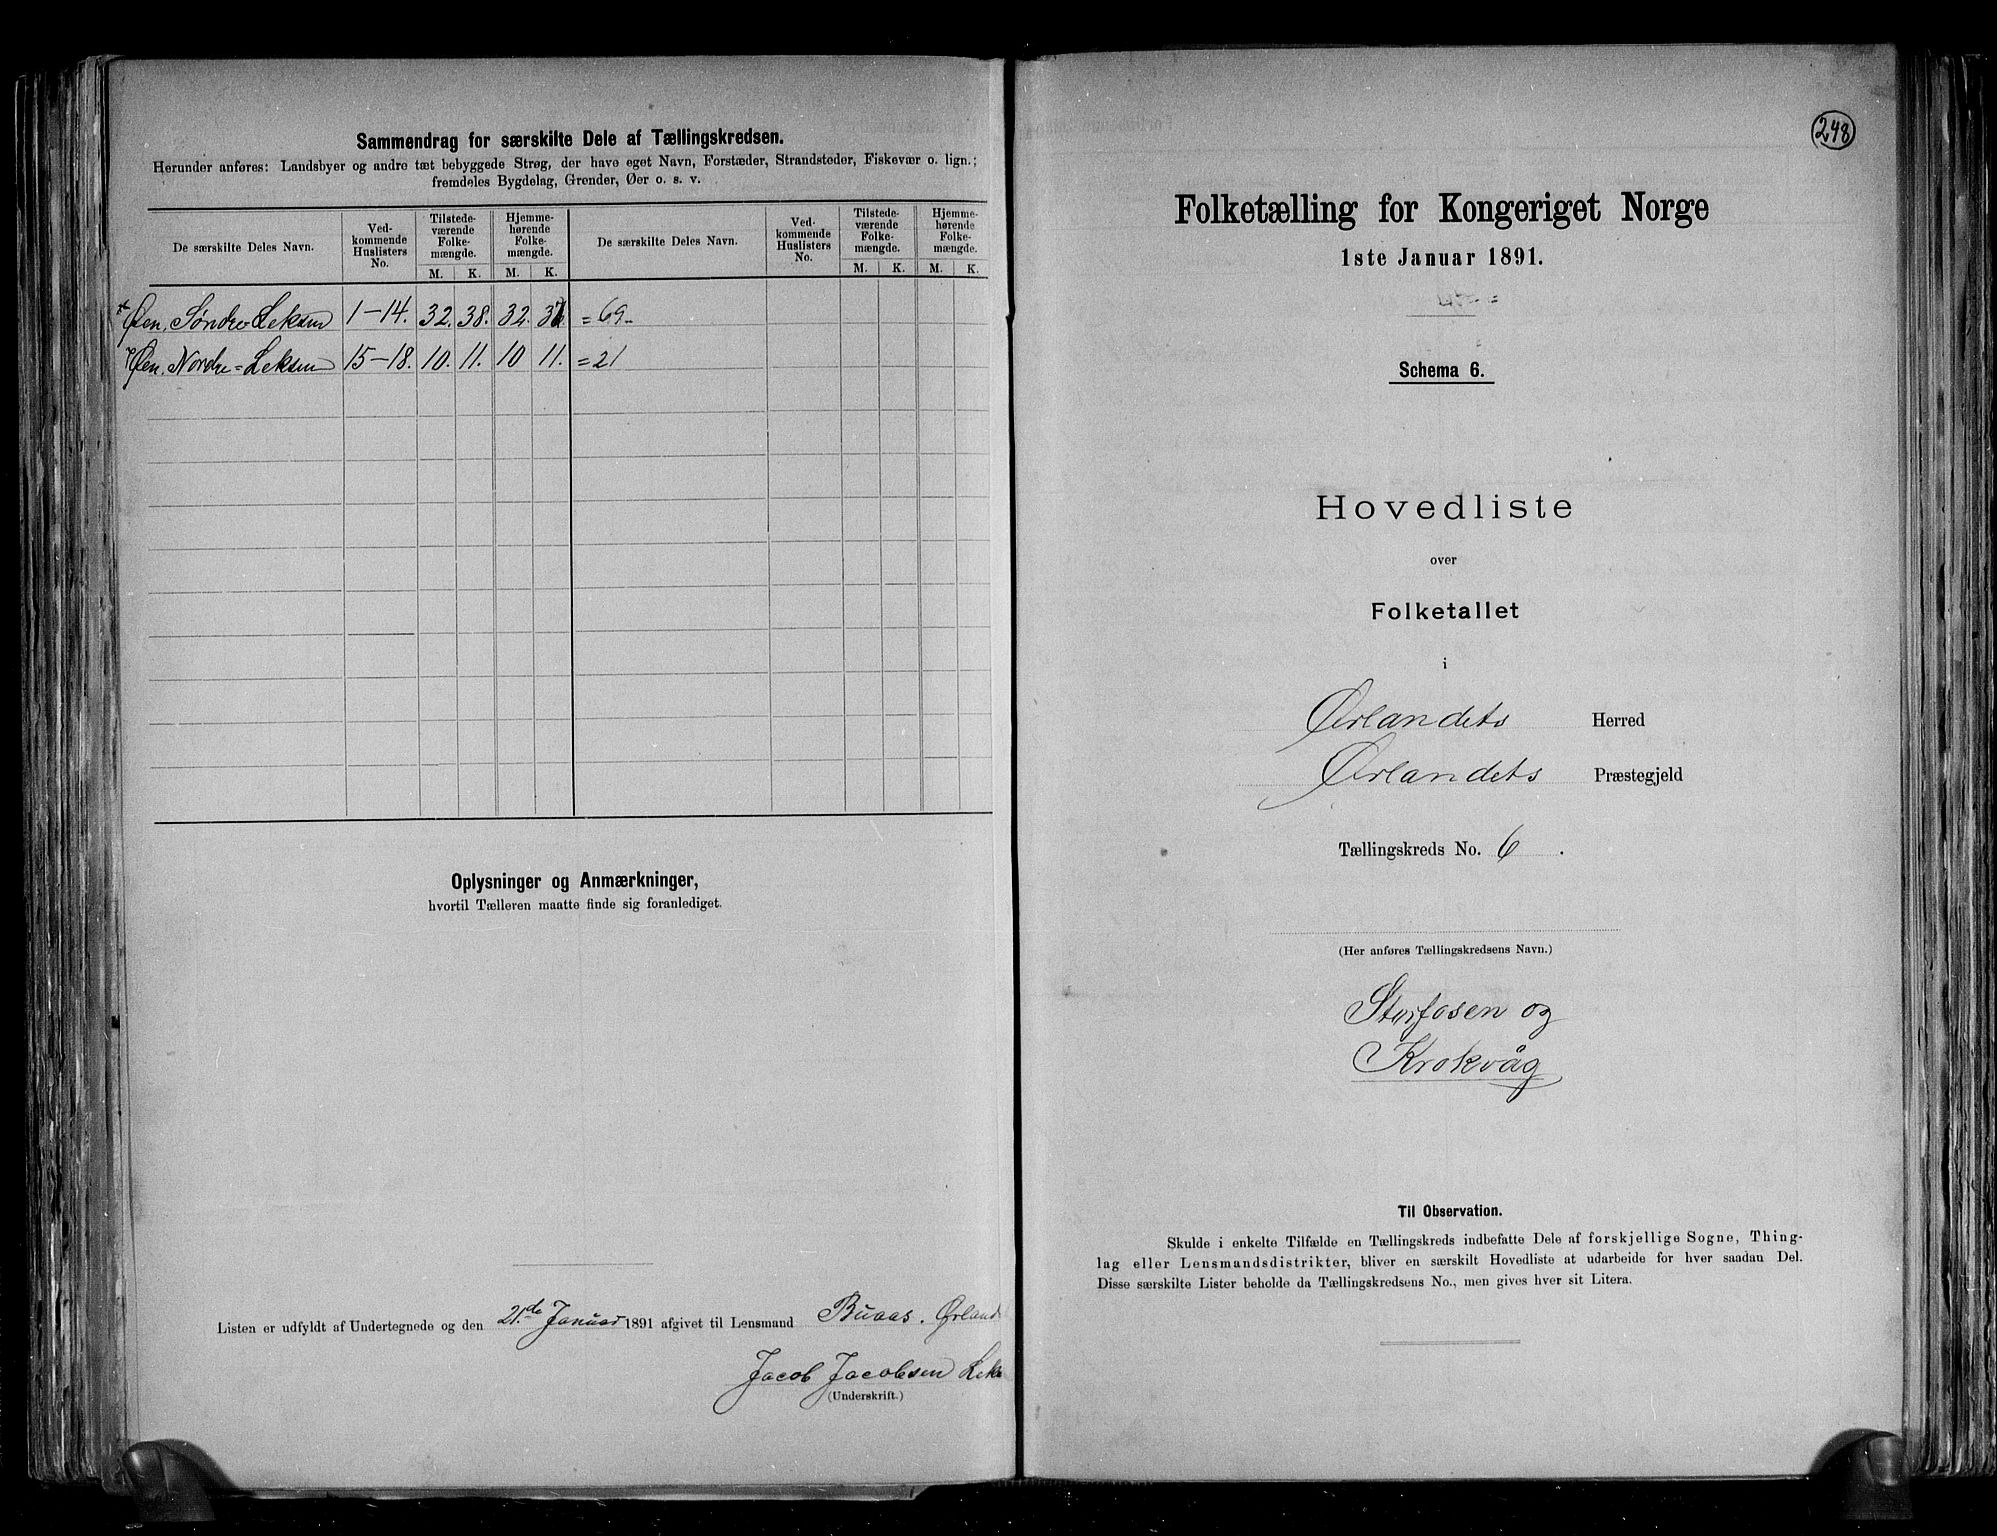 Sammendrag for særskilte Dele af Tællingskredsen.
Herunder anføres: Landsbyer og andre tæt bebyggede Strøg, der have eget Navn, Forstæder, Strandsteder, Fiskevær o. lign.;
fremdeles Bygdelag, Grender, Øer o. s. v.
De særskilte Deles Navn. Ved-kommende Huslisters No. Tilstede-værende Folke-mængde. Hjemme-hørende Folke-mængde. De særskilte Deles Navn. Ved-kommende Huslisters No. Tilstede-værende Folke-mængde. Hjemme-hørende Folke-mængde.
M. K. M. K. M. K. M. K.
Øen, Søndre Leksen 1-14. 32. 38. 32. =69-
Øen, Nordre=Leksen 15-18. 10. 11. 10 11. =21
Oplysninger og Anmærkninger,
hvortil Tælleren maatte finde sig foranlediget.
Listen er udfyldt af Undertegnede og den 21.de Januar 1891 afgivet til Lensmand Buaas. Ørland
Jacob Jacobsen Leks
(Underskrift.)
248
Folketælling for Kongeriget Norge
1ste Januar 1891.
Schema 6.
Hovedliste
over
Folketallet
i
Ørlandets Herred
Ørlandets Præstegjeld
Tællingskreds No. 6.
(Her anføres Tællingskredsens Navn.)
Storfosen og
Krokvåg
Til Observation.
Skulde i enkelte Tilfælde en Tællingskreds indbefatte Dele af forskjellige Sogne, Thing-
lag eller Lensmandsdistrikter, bliver en særskilt Hovedliste at udarbeide for hver saadan Del.
Disse særskilte Lister beholde da Tællingskredsens No., men gives hver sit Litera.